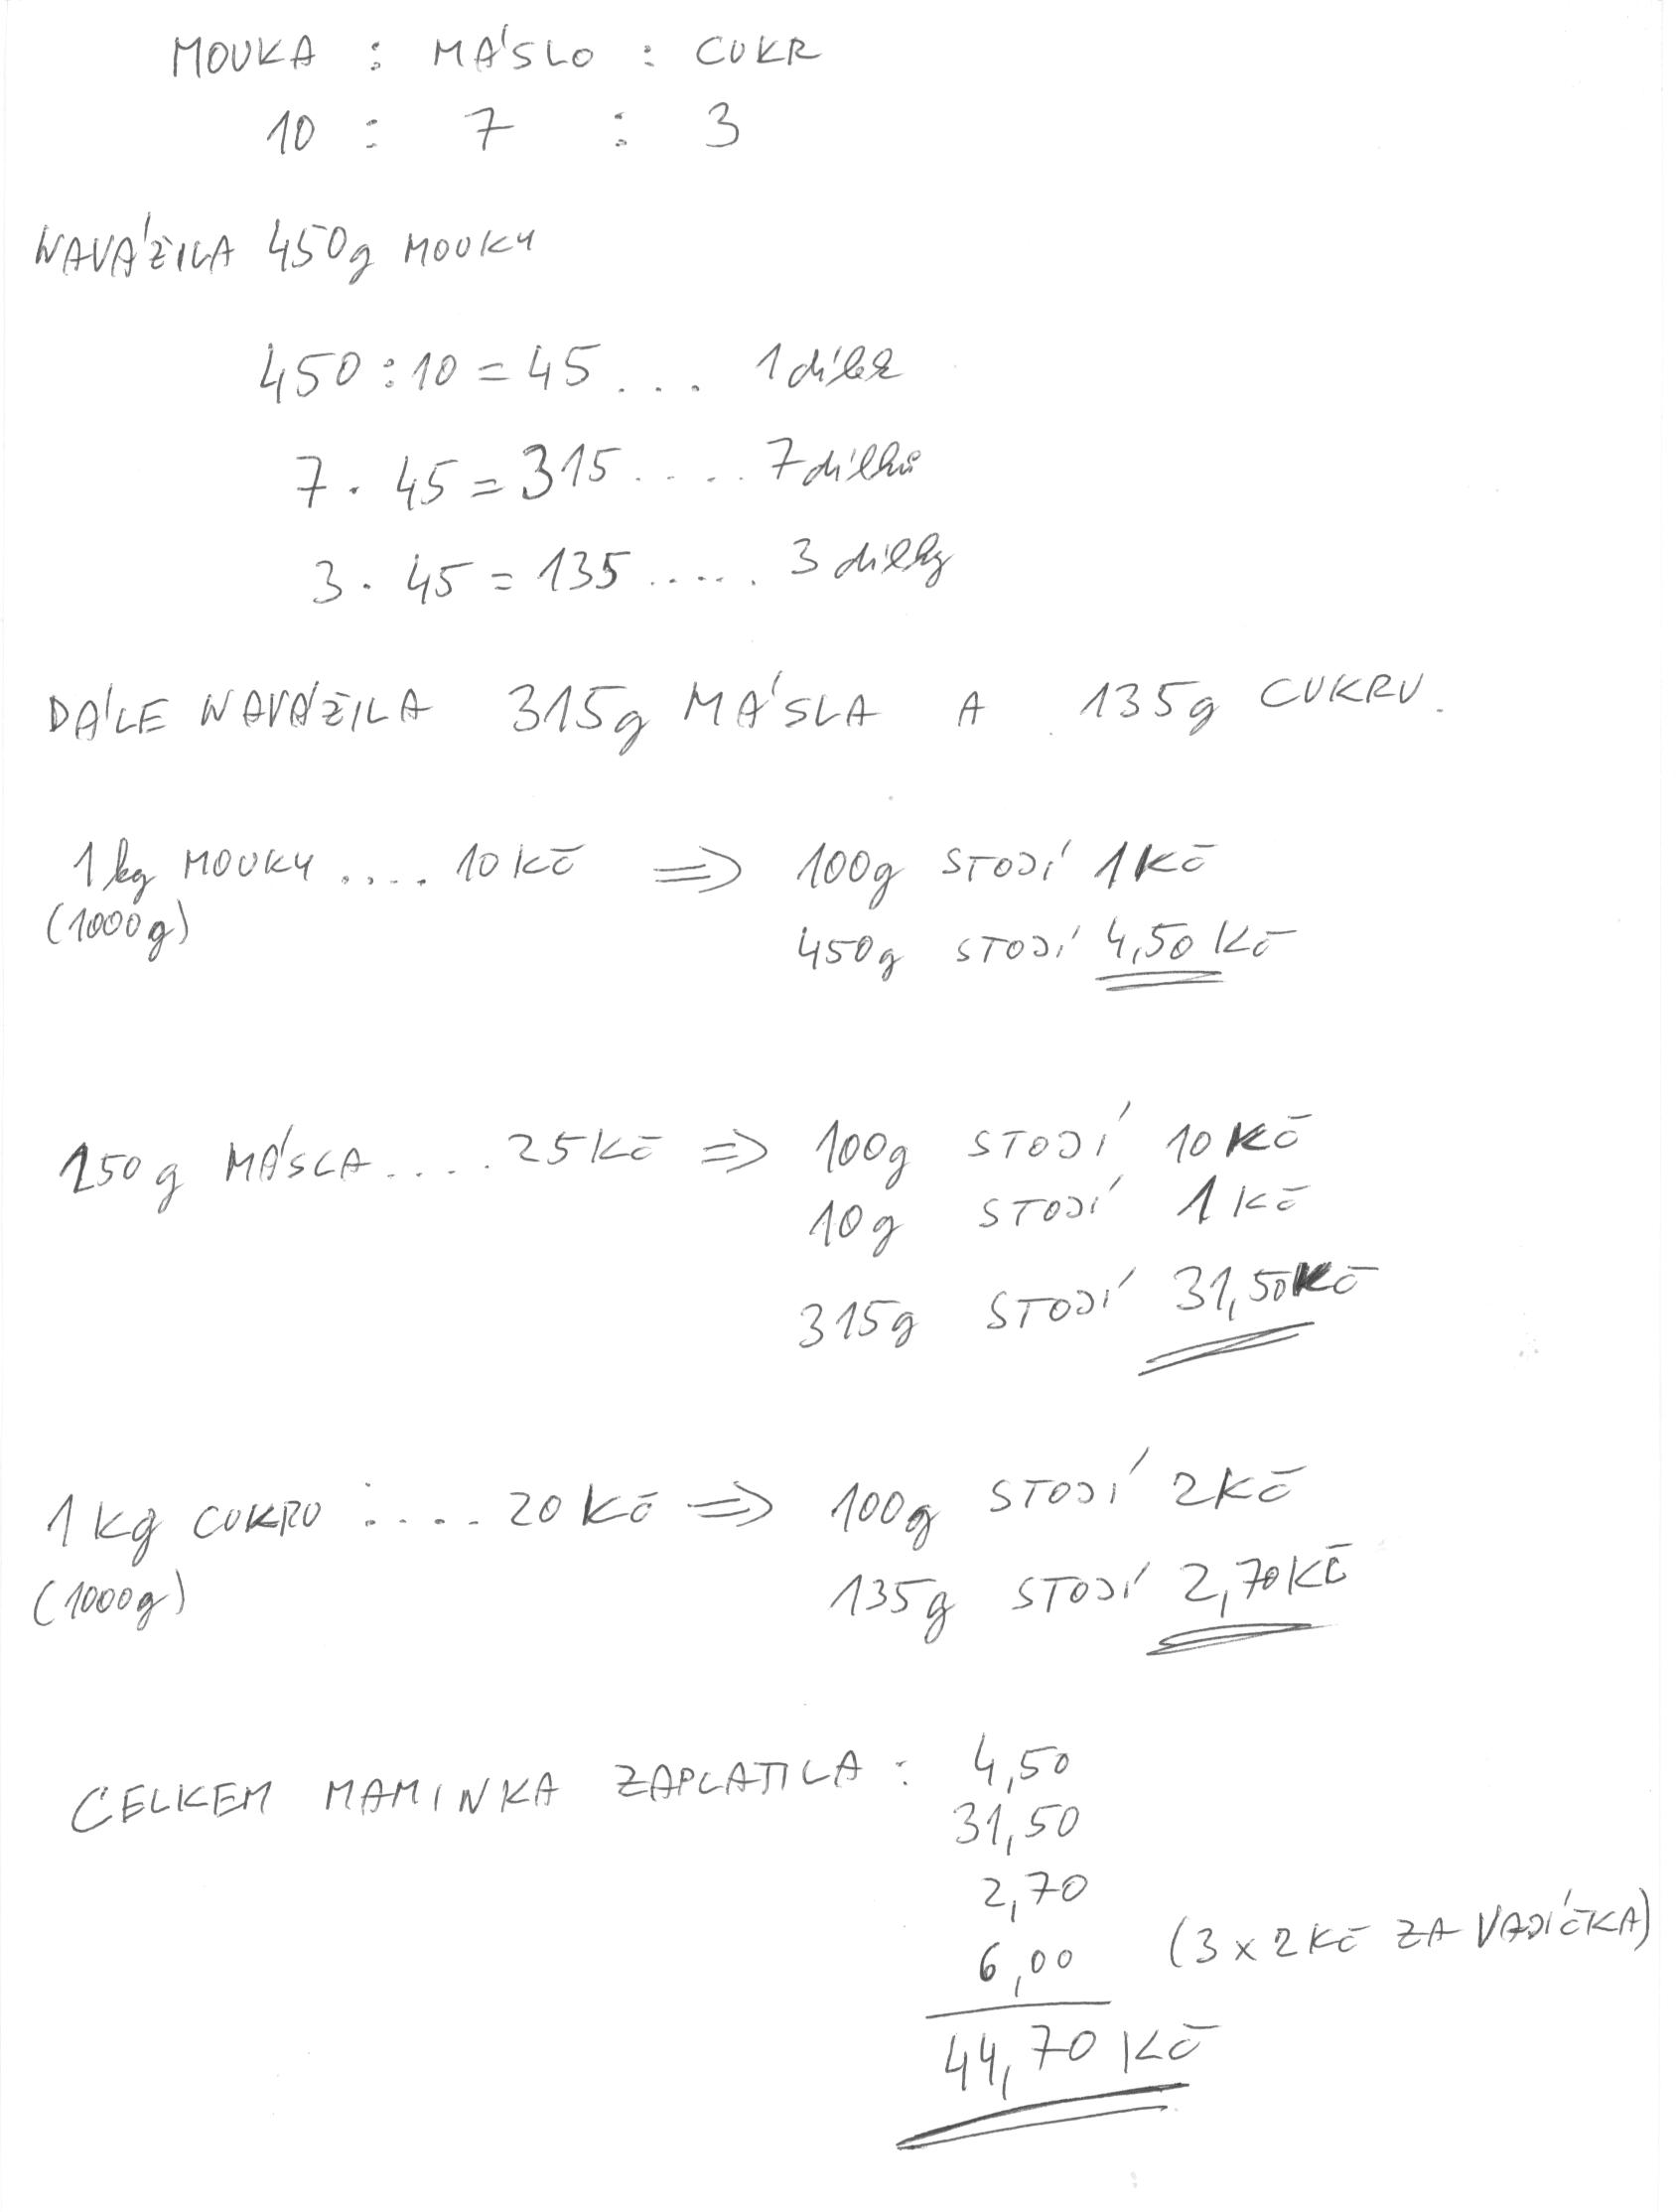 MOUKA : MÁSLO : CUKR
10 : 7 : 3
NAVÁŽILA 450g MOUKY
450 : 10 = 45 .... 1 dílek
7 . 45 = 315 ..... 7 dílků
3 . 45 = 135 ...... 3 dílky
DÁLE NAVÁŽILA 315g MÁSLA A 135g CUKRU.
1 kg MOUKY .... 10 Kč => 100g STOJÍ 1 Kč
(1000g) 450g STOJÍ 4,50 Kč
250 g MÁSLA ..... 25 Kč => 100g STOJÍ 10 Kč
10g STOJÍ 1 Kč
315g STOJÍ 31,50 Kč
1 kg CUKRU ..... 20 Kč => 100g STOJÍ 2 Kč
(1000g) 135g STOJÍ 2,70 Kč
CELKEM MAMINKA ZAPLATILA : 4,50
31,50
2,70
6,00 (3 x 2 Kč ZA VAJÍČKA)
44,70 Kč